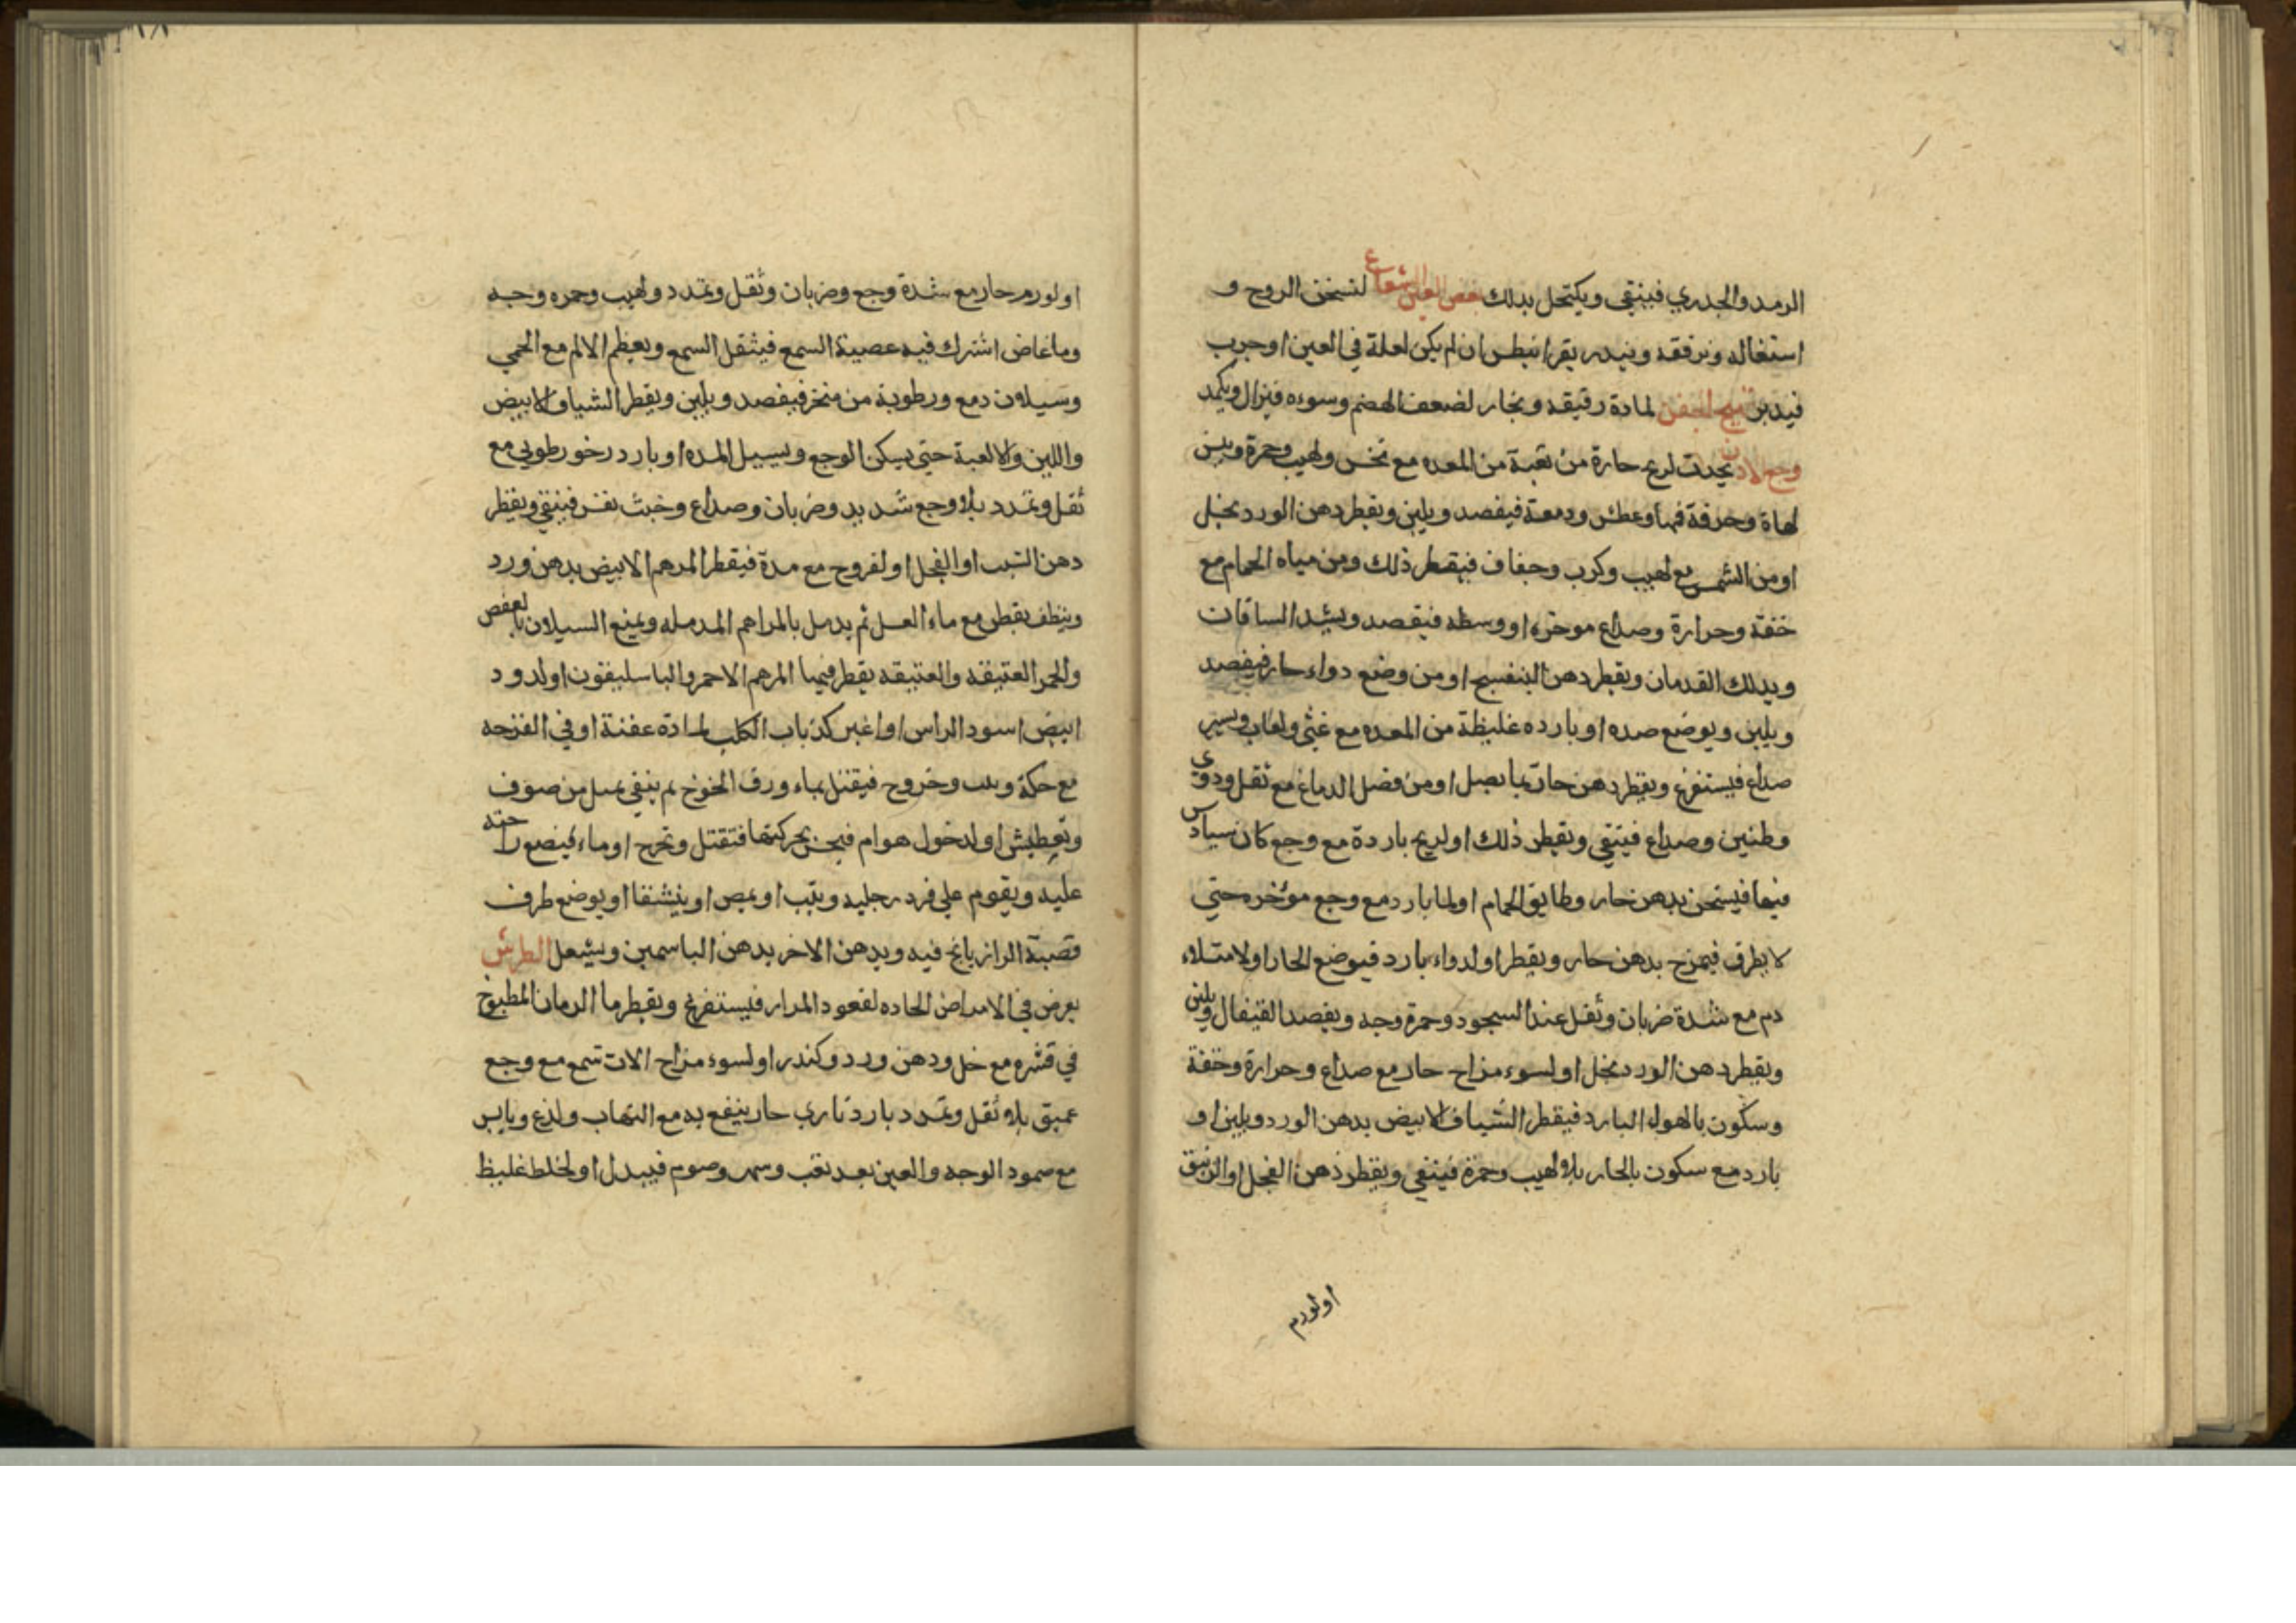 الرمد والجدري فينقى ويكتحل بذلك بغض العين الشعاع لتسخن الروح و
اشتغاله وترققه وينذر بقرانيطس ان لم يكن لعلة في العين او جرب
فيدبر تهيج الجفن لمادة رقيقه وبخار لضعف الهضم وسوءه فيزال ويكمد
وجع الاذن يحدث لريح حارة من المعده مع نخس ولهيب وحمرة ويبس
لهاة وحرقة فيها وعطش ودمعة فيفصد ويلين ويقطر دهن الورد بخل
او من الشمس مع لهيب وكرب وجفاف فيقطر ذلك ومن مياه الحمام مع
خفة وحرارة وصداع موخره او وسطه فيقصد ويشد الساقان
ويدلك القدمان ويقطر دهن البنفسج او من وضع دواء حار فيفصد
ويلين ويوضع ضده او بارده غليظة من المعده مع غثى ولعاب ويسير
صداع فيستفرغ ويقطر دهن حار بما بصل او من فضل الدماغ مع ثقل ودوى
وطنين وصداع فينقي ويقطر ذلك او لريح باردة مع وجع كان
فيها فيسخن بدهن حار وطابق الحمام او لما بارد مع وجع موخره حتي
لا يطرق فيمرخ بدهن حار ويقطر او لدواء بارد فيوضع الحار او لامتلاء
دم مع شدة ضربان وثقل عند السجود وحمرة وجه ويفصد القيفال ويلين
ويقطر دهن الورد بخل او لسوء مزاج حار مع صداع وحرارة وخفة
وسكون بالهواء البارد فيقطر الشياف الابيض بدهن الورد ويلين او
بارد مع سكون بالحار بلا لهيب وحمرة فينقي ويقطر دهن الفجل او الزنبق
اولورم
اولورم حار مع شدة وجع وضربان وثقل وتمدد ولهيب وحمره وجه
وما غاض اشترك فيه عصبية السمع فيثقل السمع ويعظم الالم مع الحمي
وسيلان دمع ورطوبة من منخر فيفصد ويلين ويقطر الشياف الابيض
واللبن والالعبة حتى يسكن الوجع ويسيل المده او بارد رخو رطوبي مع
ثقل وتمدد بلا وجع شديد وضربان وصداع وخبث نفس فينقي ويقطر
دهن الشبت او الفجل او لقروح مع مدة فيقطر المرهم الابيض بدهن ورد
وينظف بقطر مع ماء العسل ثم يدمل بالمراهم المدمله ويمنع السيلان بالعفص
والخمر العتيقه والعتيقه يقطر فيها المرهم الاحمر والباسليقون اولدود
ابيض اسود الراس او اغبر كذباب الكلب لمادة عفنة او في القرحه
مع حكة ودبب وخروج فيقتل بماء ورق الخوخ ثم ينقي بميل من صوف
وتعطيش او لدخول هوام فيحس بحركتها فتقتل وتخرج او ماء فيضع راحته
عليه ويقوم علي فرد رجليه ويثب او يمص او ينشفا او يوضع طرف
قصبة الرازيانج فيه ويدهن الاخر بدهن الياسمين ويشعل الطرش
يعرض في الامراض الحاده لقعود المرار فيستفرغ ويقطر ما الرمان المطبوخ
في قشره مع خل ودهن ورد وكندر او لسوء مزاج الات سمع مع وجع
عميق بلا ثقل وتمدد بارد تاري حار ينفع به مع التهاب ولذع ويابس
مع ضمور الوجه والعين بعد تعب وسهر وصوم فيبدل او لخلط غليظ